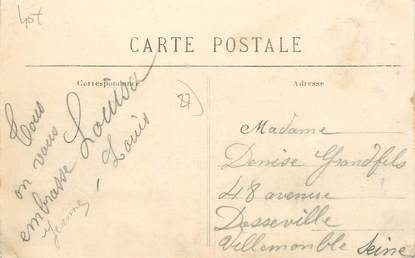 CARTE POSTALE
Correspondance
Adresse
Tous
on vous
embrasse Louisa
Louis
Jeanne
27)
Madame
Denise Grandfils
48 avenue
Desseville
Villemonble Seine